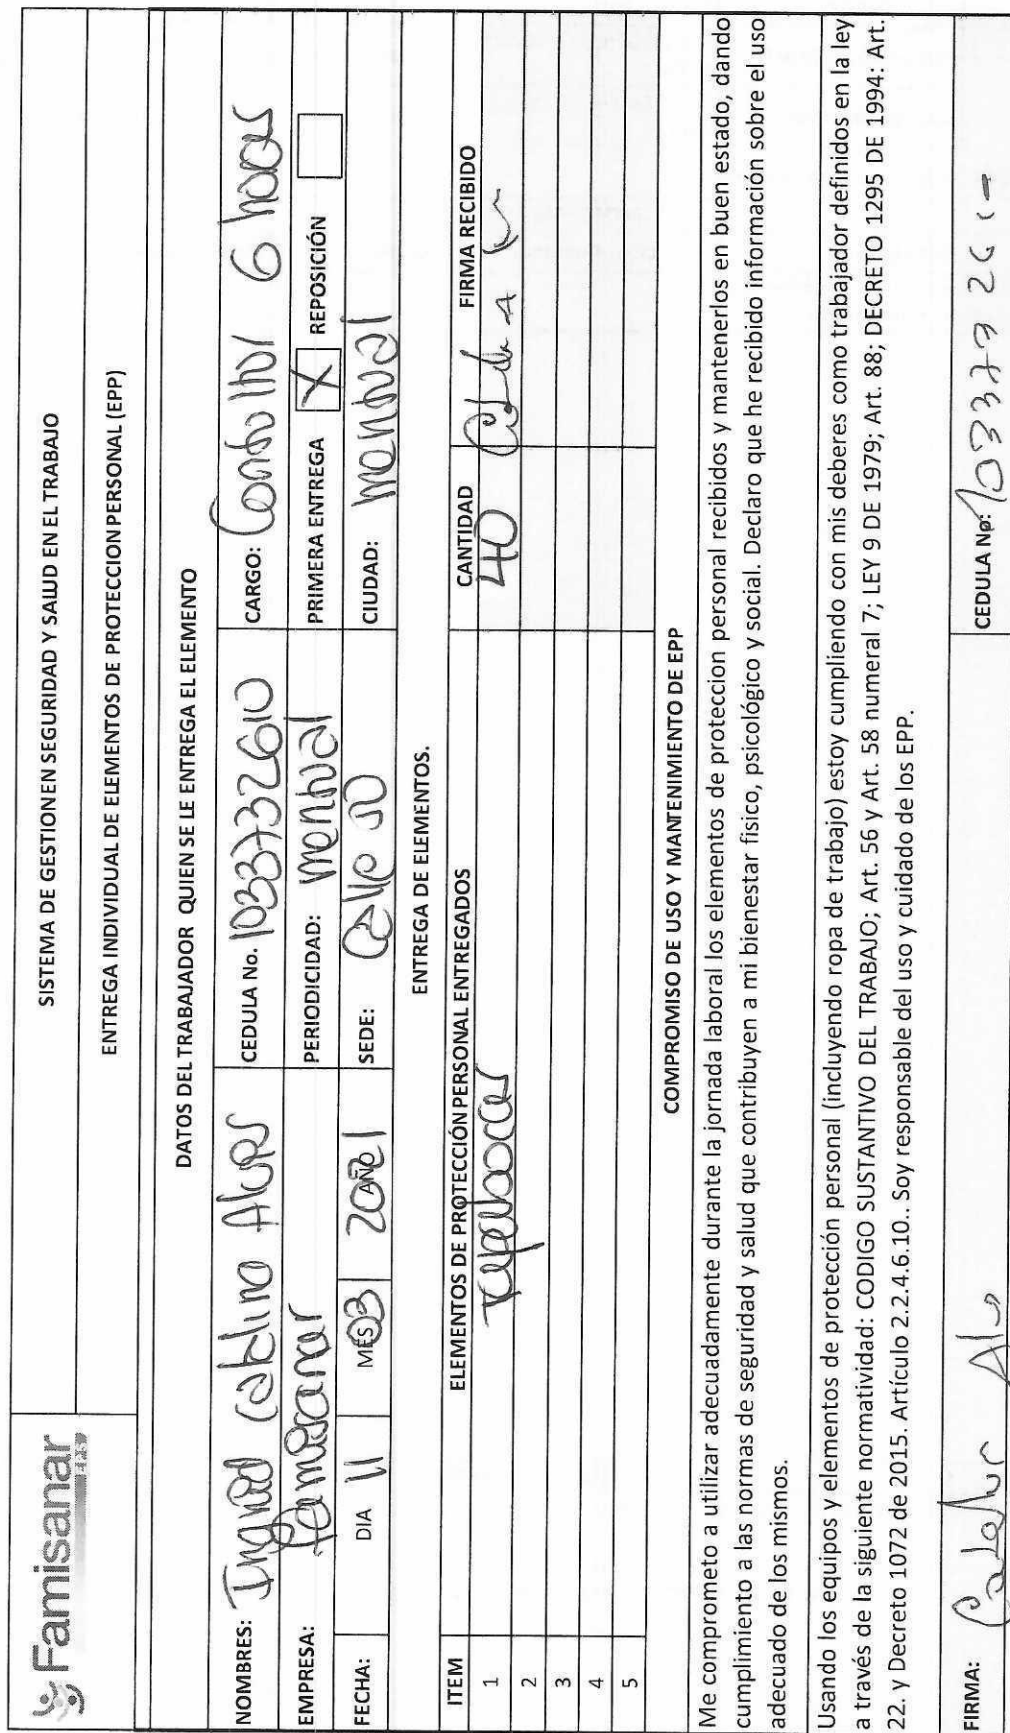 Famisanar EPS
SISTEMA DE GESTION EN SEGURIDAD Y SALUD EN EL TRABAJO
ENTREGA INDIVIDUAL DE ELEMENTOS DE PROTECCION PERSONAL (EPP)
DATOS DEL TRABAJADOR QUIEN SE LE ENTREGA EL ELEMENTO
NOMBRES: Ingrid Catalina CEDULA No. 1033732610 CARGO: 6 horas
EMPRESA: Famisanar PERIODICIDAD: mensual PRIMERA ENTREGA X REPOSICIÓN
FECHA: DIA 11 MES 03 AÑO 2021 SEDE: Calle CIUDAD: mensual
ENTREGA DE ELEMENTOS.
ITEM ELEMENTOS DE PROTECCIÓN PERSONAL ENTREGADOS CANTIDAD FIRMA RECIBIDO
1 Tapabocas 40
2
3
4
5
COMPROMISO DE USO Y MANTENIMIENTO DE EPP
Me comprometo a utilizar adecuadamente durante la jornada laboral los elementos de proteccion personal recibidos y mantenerlos en buen estado, dando
cumplimiento a las normas de seguridad y salud que contribuyen a mi bienestar fisico, psicológico y social. Declaro que he recibido información sobre el uso
adecuado de los mismos.
Usando los equipos y elementos de protección personal (incluyendo ropa de trabajo) estoy cumpliendo con mis deberes como trabajador definidos en la ley
a través de la siguiente normatividad: CODIGO SUSTANTIVO DEL TRABAJO; Art. 56 y Art. 58 numeral 7; LEY 9 DE 1979; Art. 88; DECRETO 1295 DE 1994: Art.
22. y Decreto 1072 de 2015. Artículo 2.2.4.6.10.. Soy responsable del uso y cuidado de los EPP.
FIRMA: CEDULA No: